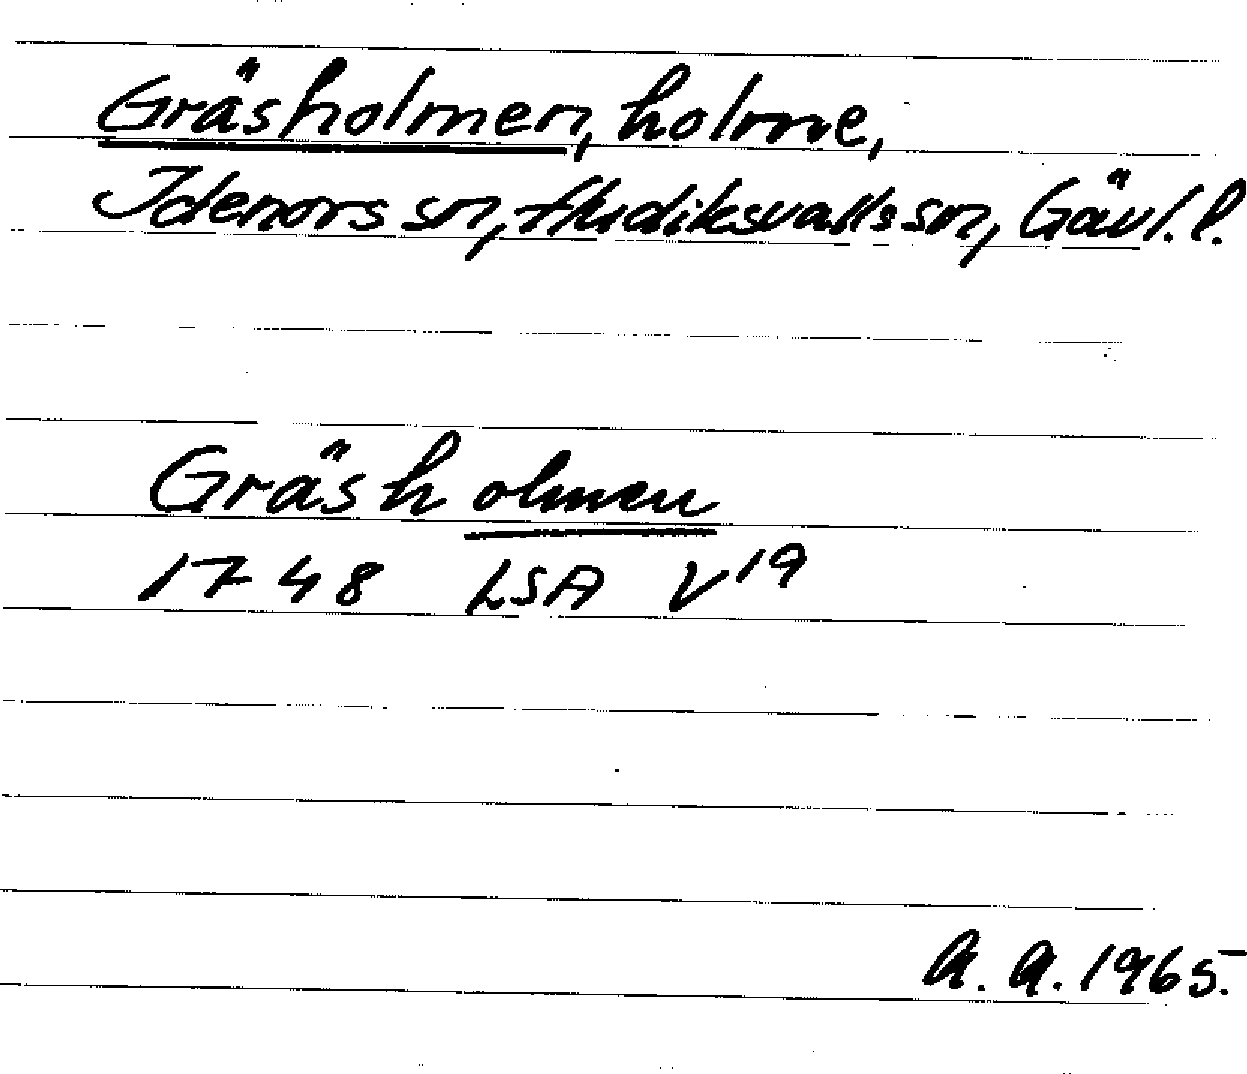 Gräsholmen, holme,
Idenors sn, Hudiksvalls sn, Gävl. l.
Gräsholmen
1748 LSA V¹⁹
A. A. 1965.